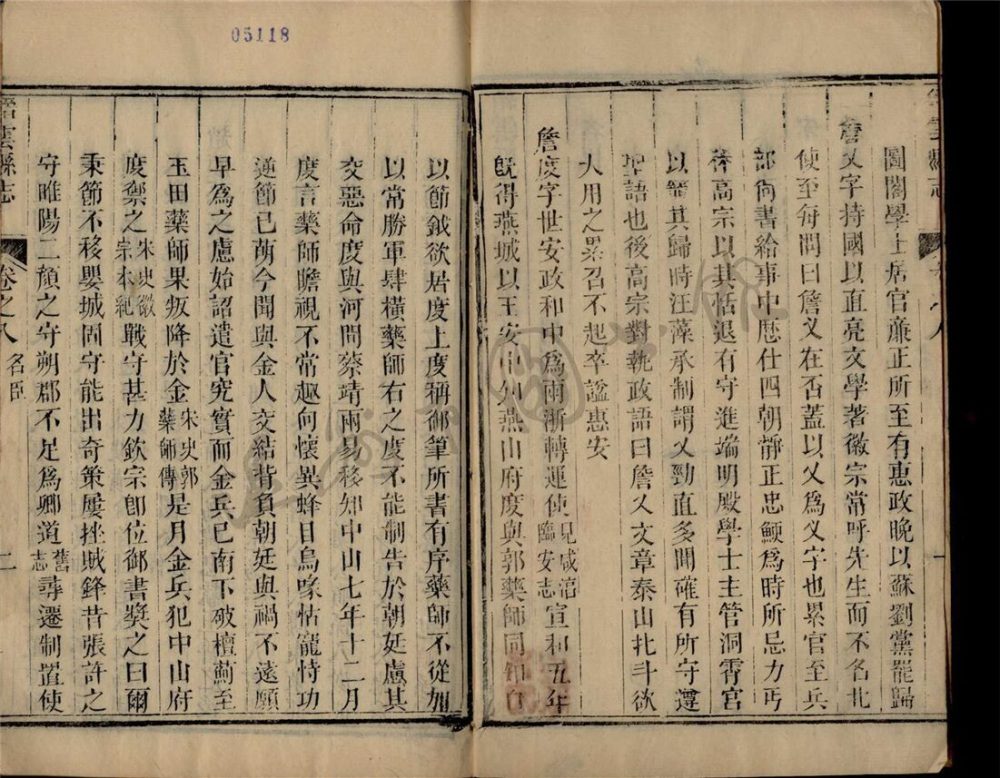 05118
圖閣學士居官亷正所至有惠政晚以蘇劉黨罷歸
詹乂字持國以直亮文學著徽宗常呼先生而不名北
使至每問曰詹乂在否蓋以乂為义字也累官至兵
部尚書給事中歴仕四朝靜正忠鯁為時所忌力丐
祠高宗以其恬退有守進端明殿學士主管洞霄宮
以寵其歸時汪藻承制謂乂勁直多聞確有所守遵
聖語也後高宗對執政語曰詹乂文章泰山北斗欲
大用之累召不起卒諡惠安
詹度字世安政和中為兩浙轉運使見咸湻臨安志宣和五年
旣得燕城以王安中知燕山府度與郭藥師同知自
以節鉞欲居度上度稱御筆所書有序藥師不從加
以常勝軍肆橫藥師右之度不能制告於朝廷慮其
交惡命度與河間蔡靖兩易移知中山七年十二月
度言藥師瞻視不常趣向懷異蜂目烏喙怙寵恃功
逆節已萌今聞與金人交結背負朝廷與禍不遠願
早為之慮始詔遣官究實而金兵已南下破檀薊至
玉田藥師果叛降於金宋史郭藥師傳是月金兵犯中山府
度禦之宋史徽宗本紀戰守甚力欽宗卽位御書奬之曰爾
秉節不移嬰城固守能出奇策屢挫賊鋒昔張許之
守睢陽二顏之守朔郡不足為卿道舊志尋遷制置使
縉雲縣志
卷之八 名臣
二